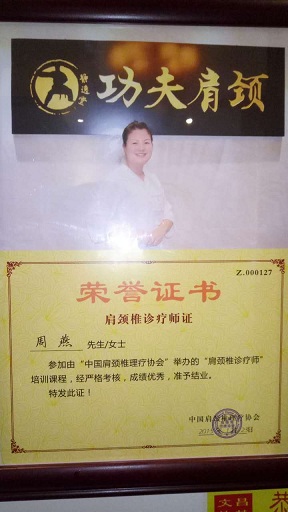 功夫肩颈
Z.000127
荣誉证书
肩颈椎诊疗师证
周燕 先生/女士
参加由“中国肩颈椎理疗协会”举办的“肩颈椎诊疗师”
培训课程，经严格考核，成绩优秀，准予结业。
特发此证！
中国肩颈椎理疗协会
文昌
恭